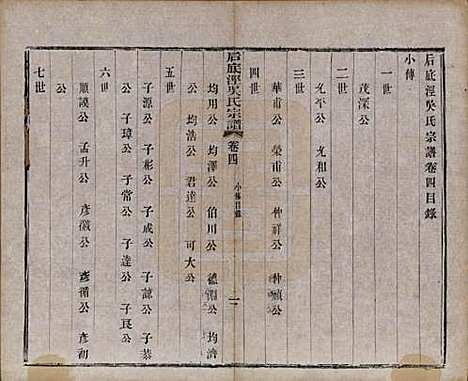 后底涇吳氏宗譜卷四目錄
小傳
一世
茂深公
二世
允平公 允和公
三世
華甫公 榮甫公 仲祥公 仲禎公
四世
后底涇吳氏宗譜 卷四 小傳目錄 一
均用公 均澤公 伯川公 德淵公 均濟
公 均浩公 君達公 可大公
五世
子源公 子彬公 子成公 子諒公 子恭
公 子璋公 子常公 子達公 子良公
六世
順謨公 孟升公 彥徽公 彥循公 彥初
公
七世